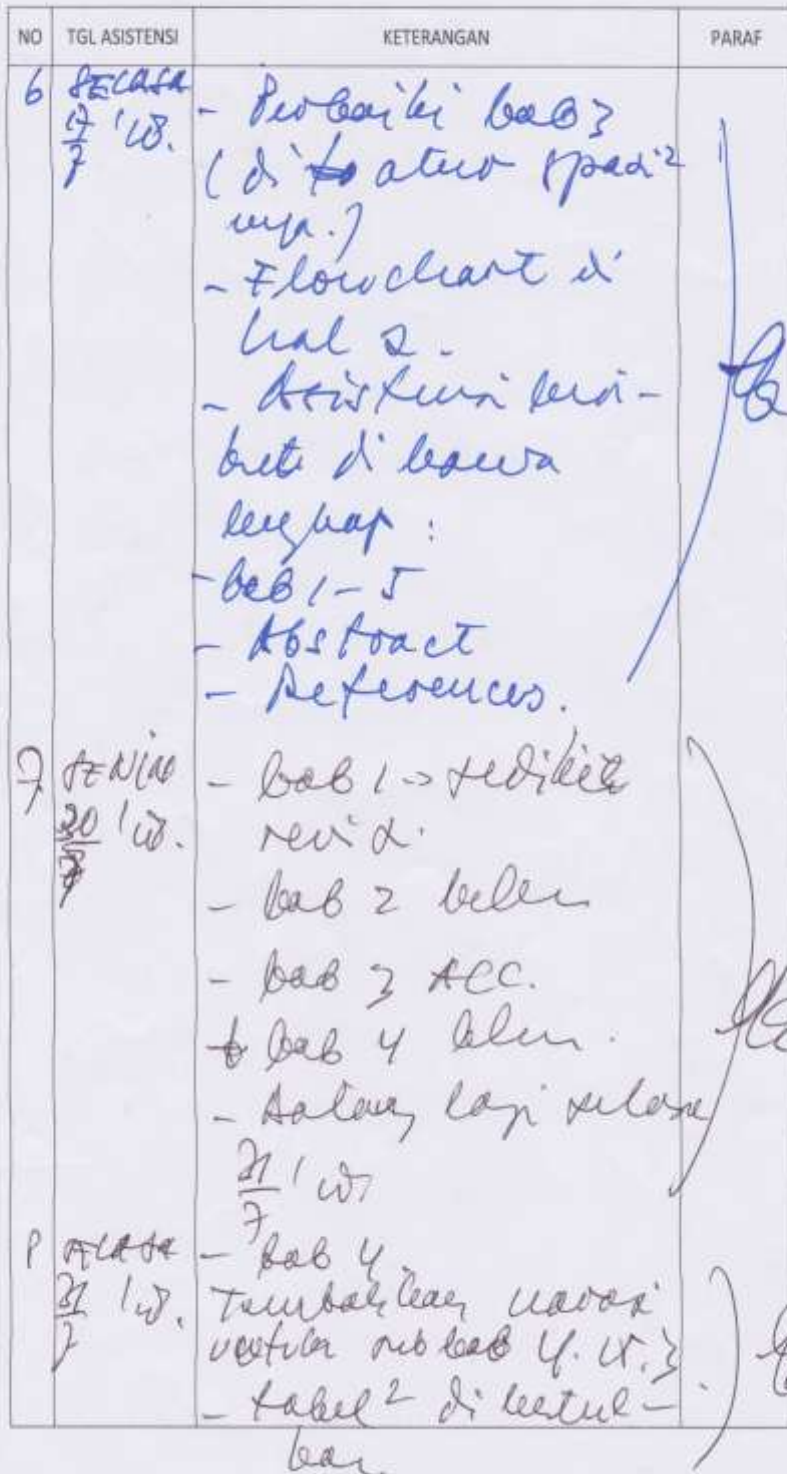 NO TGL ASISTENSI KETERANGAN PARAF
6 SELASA - Perbaiki bab 3
17/7 '18. (di atur spasi²
nya.)
- Flowchart di
hal 2.
- Asistensi beri-
kut di bawa
lengkap :
- bab 1-5
- Abstract
- References.
7 SENIN - bab 1 -> sedikit
30/7 '18. revisi.
- bab 2 belum
- bab 3 ACC.
bab 4 belum.
- Datang lagi selasa
31/7 '18
8 SELASA - bab 4.
31/7 '18. Tambahkan narasi
sub bab 4.
- tabel² di betul-
kan.